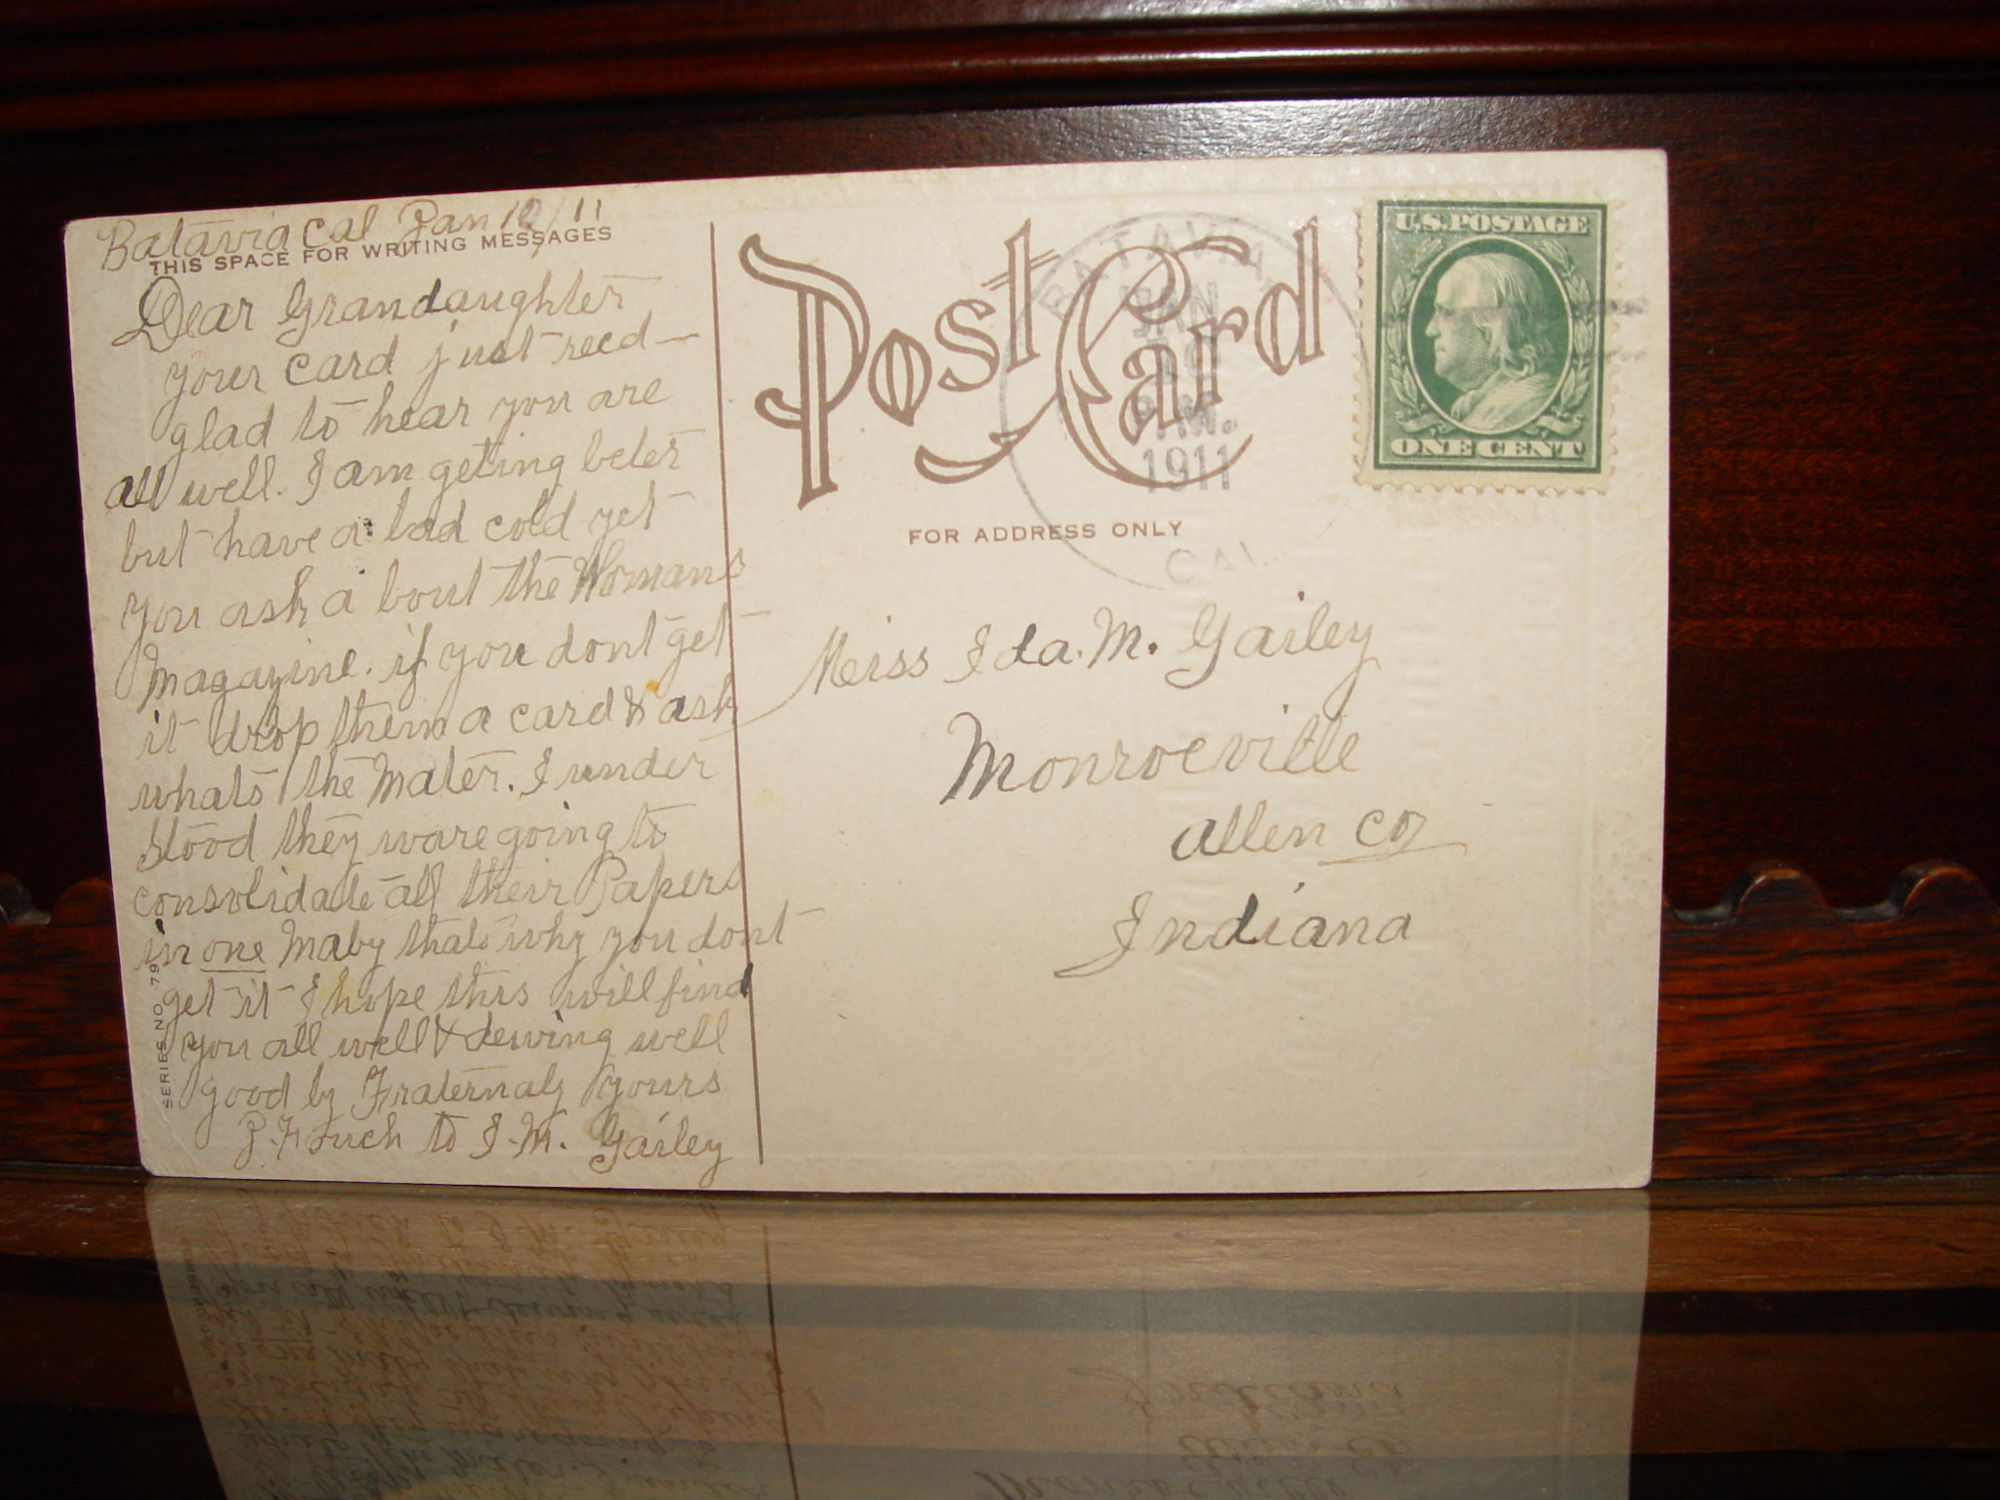 Batavia Cal Jan 10/11
THIS SPACE FOR WRITING MESSAGES
Dear Grandaughter
your card just recd—
glad to hear you are
all well. I am geting beter
but have a bad cold yet
you ask a bout the Womans
Magazine. if you dont get
it drop them a card & ask
whats the Mater. I under
stood they ware going to
consolidate all their Papers
in one Maby thats why you dont
get it I hope this will find
you all well & dewing well
good by Fraternaly yours
J. Fouch to I. M. Gailey
SERIES NO. 79
Post Card
BATAVIA
JAN
10
P.M.
1911
CAL.
U.S. POSTAGE
ONE CENT
FOR ADDRESS ONLY
Miss Ida. M. Gailey
Monroeville
allen co
Indiana